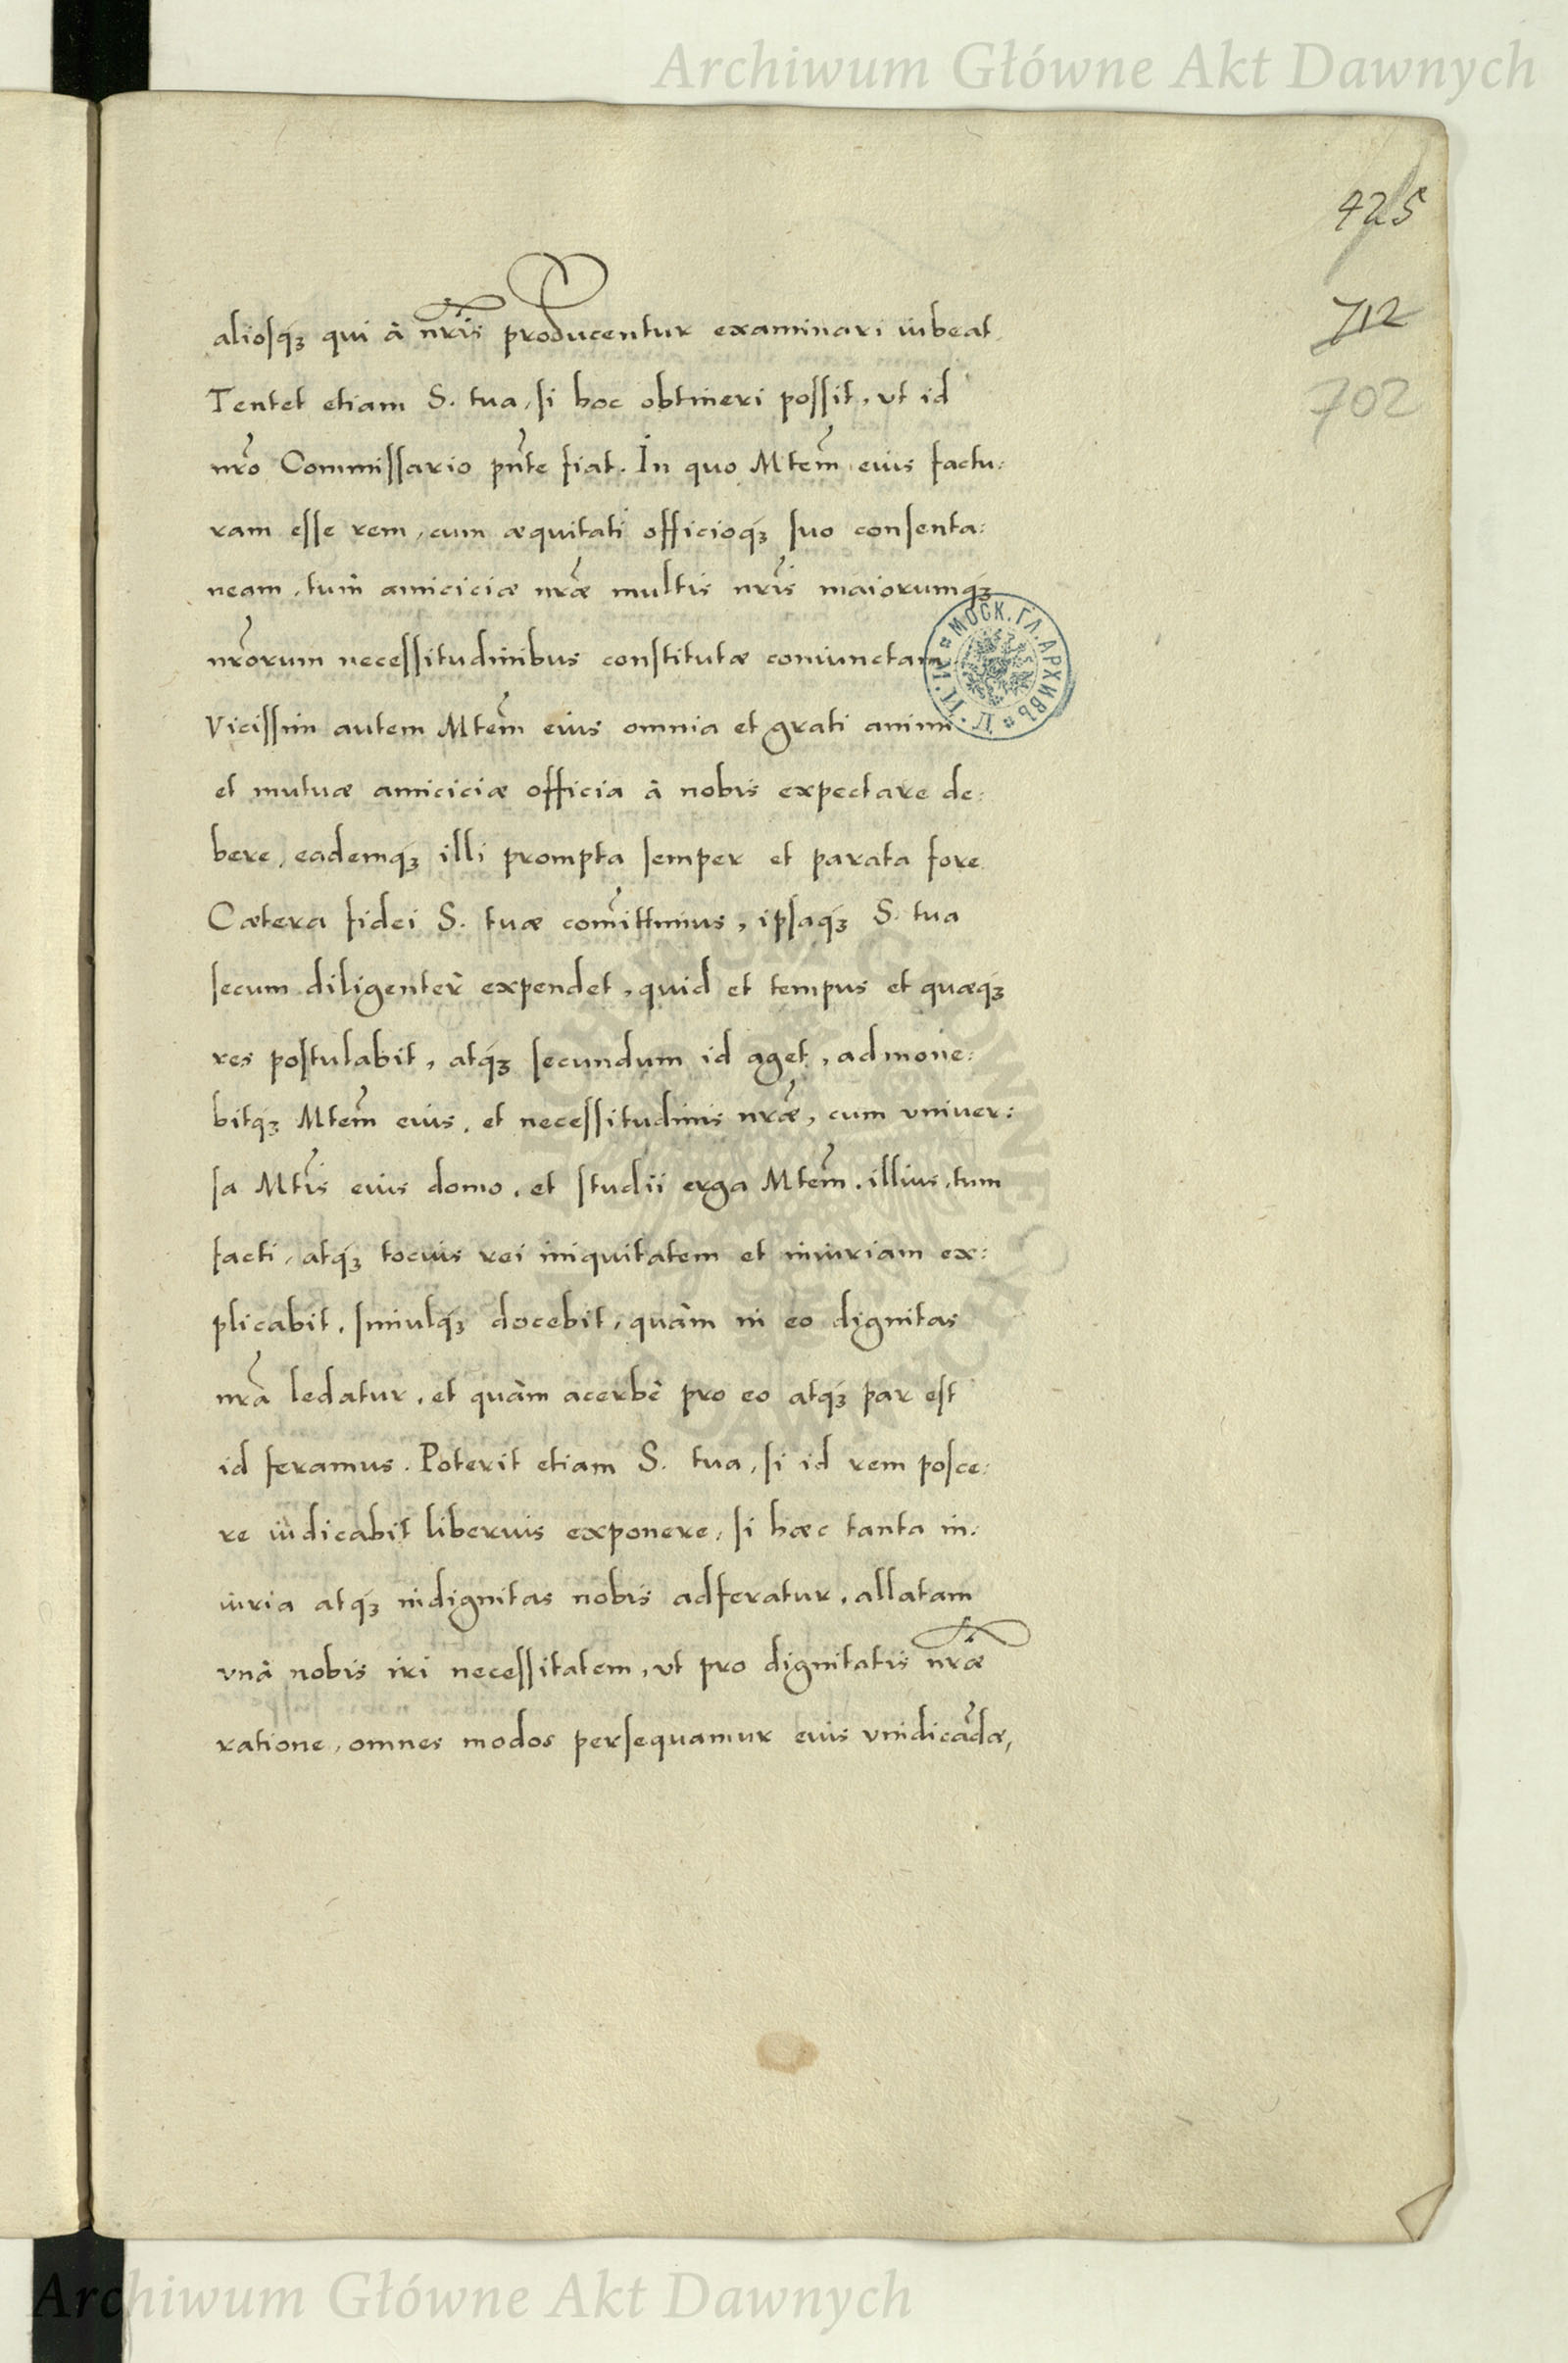 Archiwum Główne Akt Dawnych
425
712
702
aliosq́ꝫ qui à nr̃is producentur examinari iubeat.
Tentet etiam S. tua, si hoc obtineri possit, vt id
nr̃o Commissario pñte fiat. In quo Mtem̃ eius factu:
ram esse rem, cum æquitati officioq́ꝫ suo consenta:
neam, tum amiciciæ nr̃æ multis nr̃is maiorumq́ꝫ
nr̃orum necessitudinibus constitutæ coniunctam
МОСК. ГЛ. АРХИВЪ
Vicissim autem Mtem̃ eius omnia et grati animi
et mutuæ amiciciæ officia à nobis expectare de:
bere, eademq́ꝫ illi prompta semper et parata fore.
Cætera fidei S. tuæ com̃ittimus, ipsaq́ꝫ S. tua
secum diligenter expendet, quid et tempus et quæq́ꝫ
res postulabit, atq́ꝫ secundum id aget, admone:
bitq́ꝫ Mtem̃ eius, et necessitudinis nr̃æ, cum vniuer:
sa Mtis̃ eius domo, et studii erga Mtem̃ illius, tum
facti, atq́ꝫ tocius rei iniquitatem et iniuriam ex:
plicabit, simulq́ꝫ docebit, quàm in eo dignitas
nr̃a ledatur, et quàm acerbè pro eo atq́ꝫ par est
id feramus. Poterit etiam S. tua, si id rem posce:
re iudicabit liberius exponere, si hæc tanta in:
iuria atq́ꝫ indignitas nobis adferatur, allatam
vnà nobis iri necessitatem, vt pro dignitatis nr̃æ
ratione, omnes modos persequamur eius vindicãdæ,
Archiwum Główne Akt Dawnych